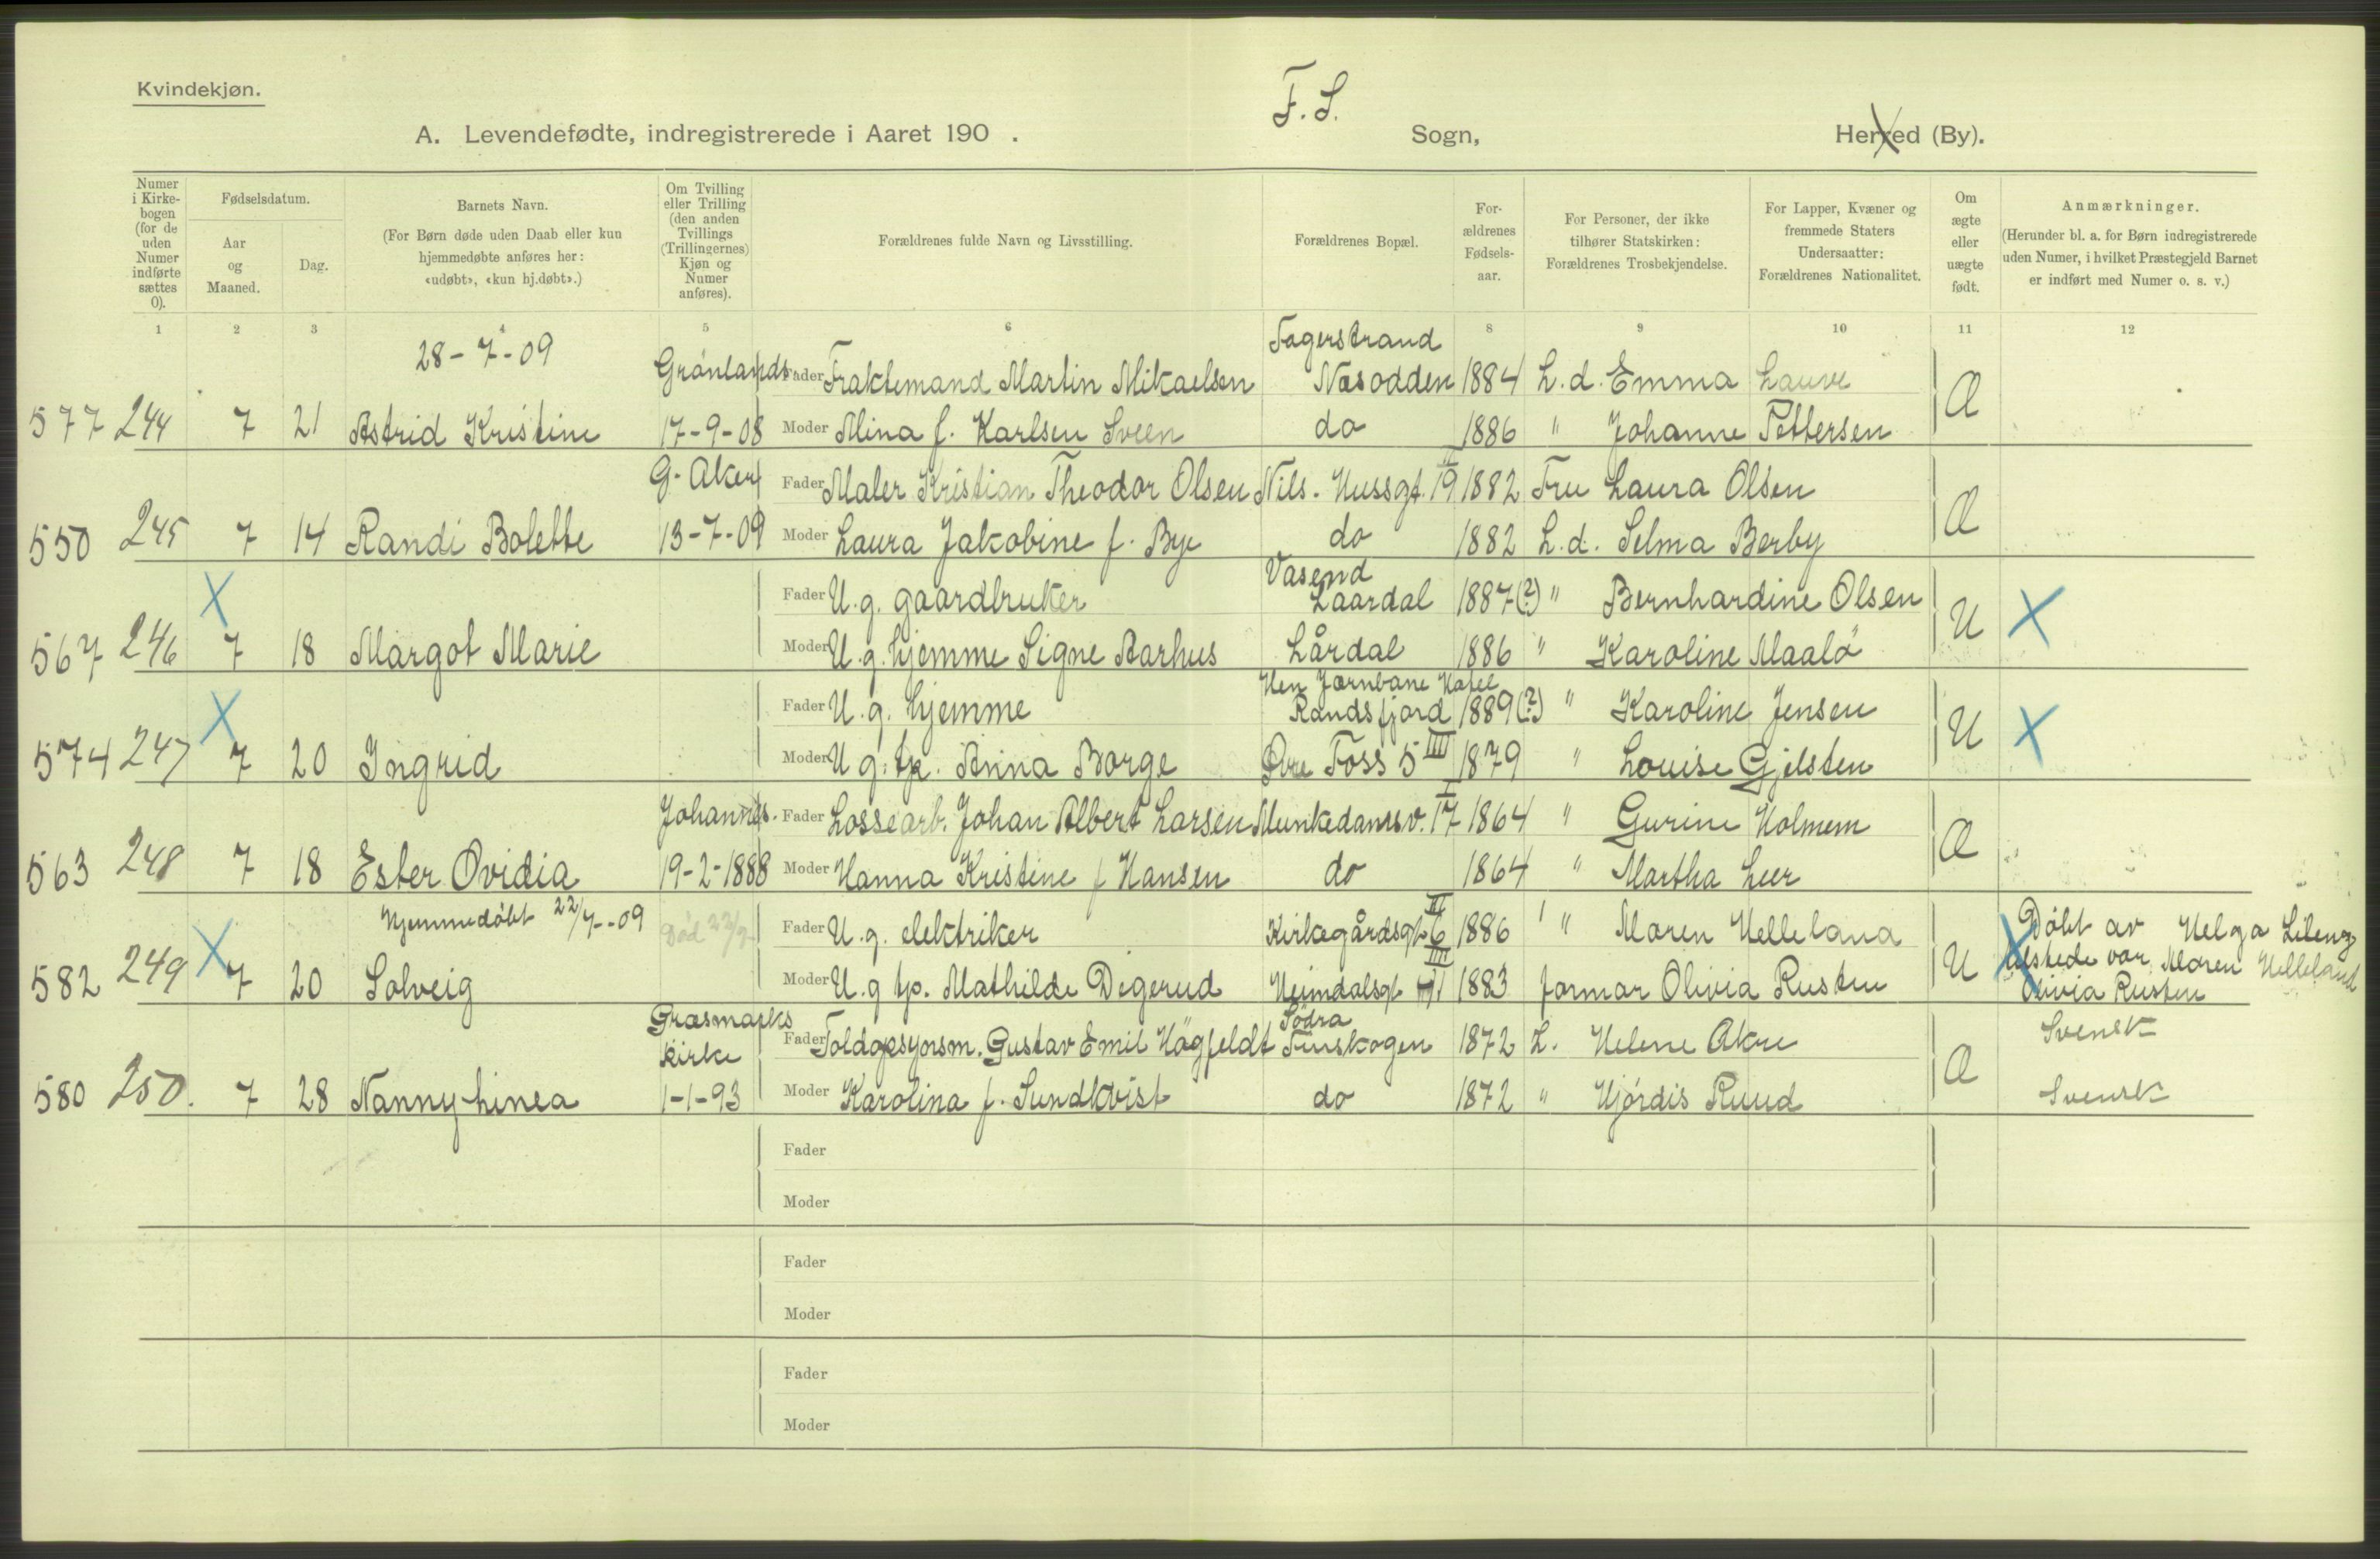 Kvindekjøn.
F. S.
A. Levendefødte, indregistrerede i Aaret 190 . Sogn, Herred (By).
Numer i Kirkebogen (for de uden Numer indførte sættes 0).
Fødselsdatum.
Aar og Maaned.
Dag.
Barnets Navn.
(For Børn døde uden Daab eller kun hjemmedøbte anføres her: «udøbt», «kun hj.døbt».)
Om Tvilling eller Trilling (den anden Tvillings (Trillingernes) Kjøn og Numer anføres).
Forældrenes fulde Navn og Livsstilling.
Forældrenes Bopæl.
Forældrenes Fødselsaar.
For Personer, der ikke tilhører Statskirken: Forældrenes Trosbekjendelse.
For Lapper, Kvæner og fremmede Staters Undersaatter: Forældrenes Nationalitet.
Om ægte eller uægte født.
Anmærkninger.
(Herunder bl. a. for Børn indregistrerede uden Numer, i hvilket Præstegjeld Barnet er indført med Numer o. s. v.)
1 2 3 4 5 6 8 9 10 11 12
28-7-09 Grønlands Fader Fraktemand Martin Mikaelsen Fagerstrand Næsodden 1884 L. d. Emma Lauve Æ
577 244 7 21 Astrid Kristine 17-9-08 Moder Mina f. Karlsen Sveen do 1886 " Johanne Pettersen
G. Aker Fader Maler Kristian Theodor Olsen Nils Hussgt. 19 II 1882 Fru Laura Olsen Æ
550 245 7 14 Randi Bolette 13-7-09 Moder Laura Jakobine f. Bye do 1882 L. d. Selma Berby
X Fader U. g. gaardbruker Vasend Laardal 1887(?) " Bernhardine Olsen U X
567 246 7 18 Margot Marie Moder U. g. hjemme Signe Aarhus Lårdal 1886 " Karoline Maalø
X Fader U. g. hjemme Hen Jærnbane Randsfjord 1889(?) " Karoline Jensen U X
574 247 7 20 Ingrid Moder U. g. tp. Anna Borge Øvre Foss 5 III 1879 " Louise Gjelsten
Johannes. Fader Lossearb. Johan Albert Larsen Munkedamsv. 17 I 1864 " Gurine Holmem Æ
563 248 7 18 Ester Ovidia 19-2-1888 Moder Hanna Kristine f Hansen do 1864 " Martha Leer
Hjemmedøbt 22/7-09 Død 22/7 X Fader U. g. elektriker Kirkegårdsgt. 6 II 1886 " Maren Helleland U X Døbt av Helga Lileng
tilstede var Maren Helleland
582 249 7 20 Solveig Moder U. g tp. Mathilde Digerud Heimdalsgt III 1883 Jormor Olivia Rusten Olivia Rusten
Græsmarks kirke Fader Toldopsynsm. Gustav Emil Högfeldt Södra Finskogen 1872 L. Helene Akre Æ Svensk
580 250. 7 28 Nanny Linea 1-1-93 Moder Karolina f. Sundkvist do 1872 " Hjørdis Ruud Svensk
Fader
Moder
Fader
Moder
Fader
Moder